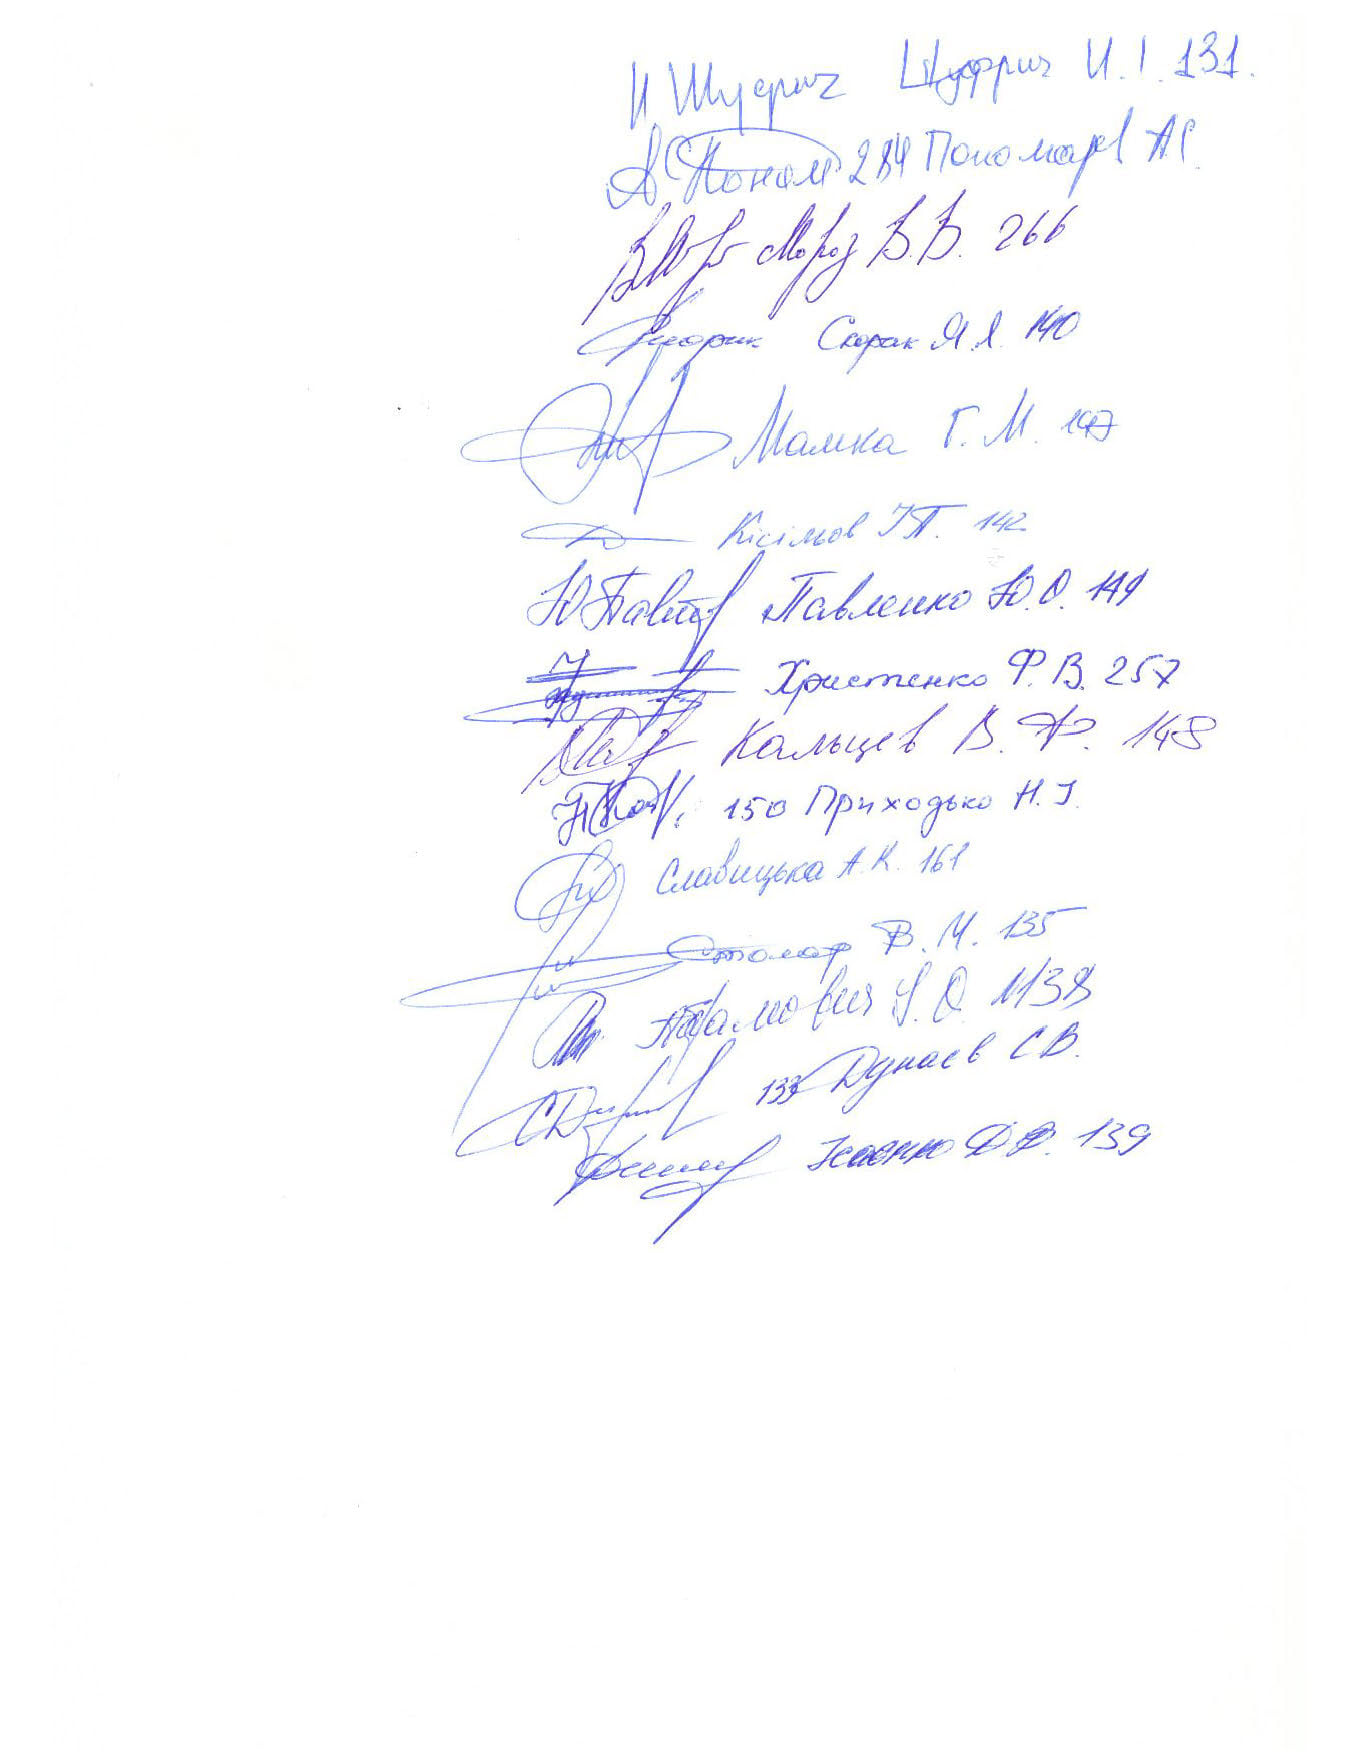 Н Шуфрич Шуфрич Н. І. 131.
А Поном 284 Пономарёв А С
Мороз В. В. 266
Скорик Скорик М. Л. 140
Мамка Г. М. 147
Кісільов І П. 142
Ю Павл Павленко Ю. О. 149
Христенко Ф. В. 257
Кальцев В. Ф. 148
150 Приходько Н. І.
Славицька А. К. 161
Столар В. М. 135
Абрамович І. О. №138
133 Дунаєв С В.
Ісаєнко Д. В. 139